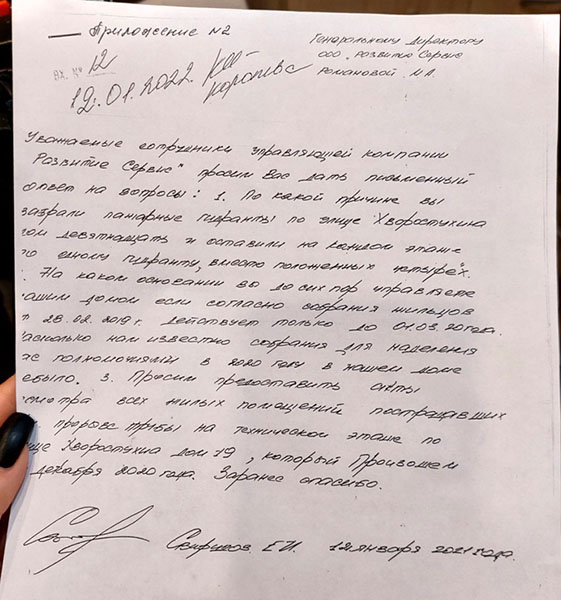 Приложение N2
Генеральному Директору
ООО "Развитие Сервис"
Романовой М.А.
Вх. № 12
12.01.2022.
Уважаемые сотрудники управляющей компании
Развитие Сервис" просим Вас дать письменный
ответ на вопросы: 1. По какой причине вы
забрали пожарные гидранты по улице Хворостухина
дом девятнадцать и оставили на каждом этаже
по одному гидранту, вместо положенных четырёх.
. На каком основании вы до сих пор управляете
нашим домом если согласно собрания жильцов
28.02.2019 г. действует только до 01.03.20 года.
насколько нам известно собрания для наделения
вас полномочиями в 2020 году в нашем доме
не было. 3. Просим предоставить акты
осмотра всех жилых помещений пострадавших
прорыве трубы на техническом этаже по
улице Хворостухина дом 19, который Произошел
декабря 2020 года. Заранее спасибо.
Е.И. 12 января 2021 года.